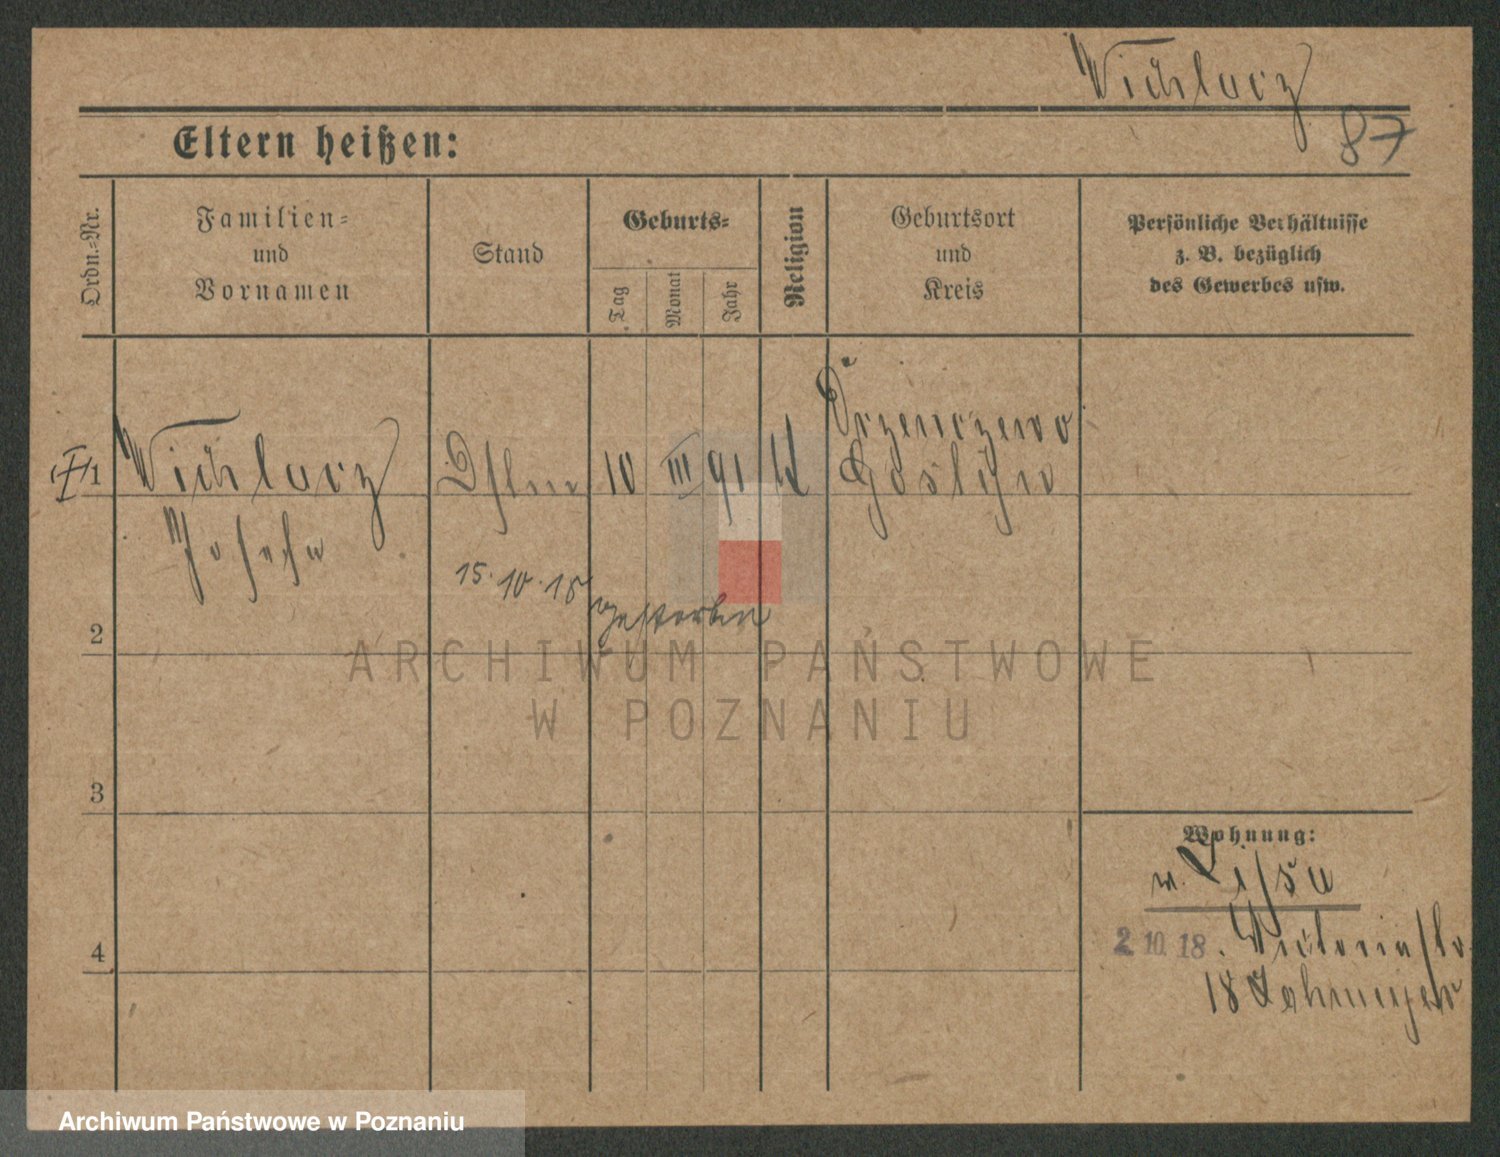 Wichlacz
87
Eltern heißen:
Ordn.-Nr.
Familien-
und
Vornamen
Stand
Geburts-
Tag
Monat
Jahr
Religion
Geburtsort
und
Kreis
Persönliche Verhältnisse
z. B. bezüglich
des Gewerbes usw.
1
Wichlacz
10 III 91
Drzenczewo
Gostyn
Josefa
15.10.18 gestorben
2
ARCHIWUM PAŃSTWOWE
W POZNANIU
3
Wohnung:
Lissa
4
2.10.18. Victoriastr.
18
Archiwum Państwowe w Poznaniu